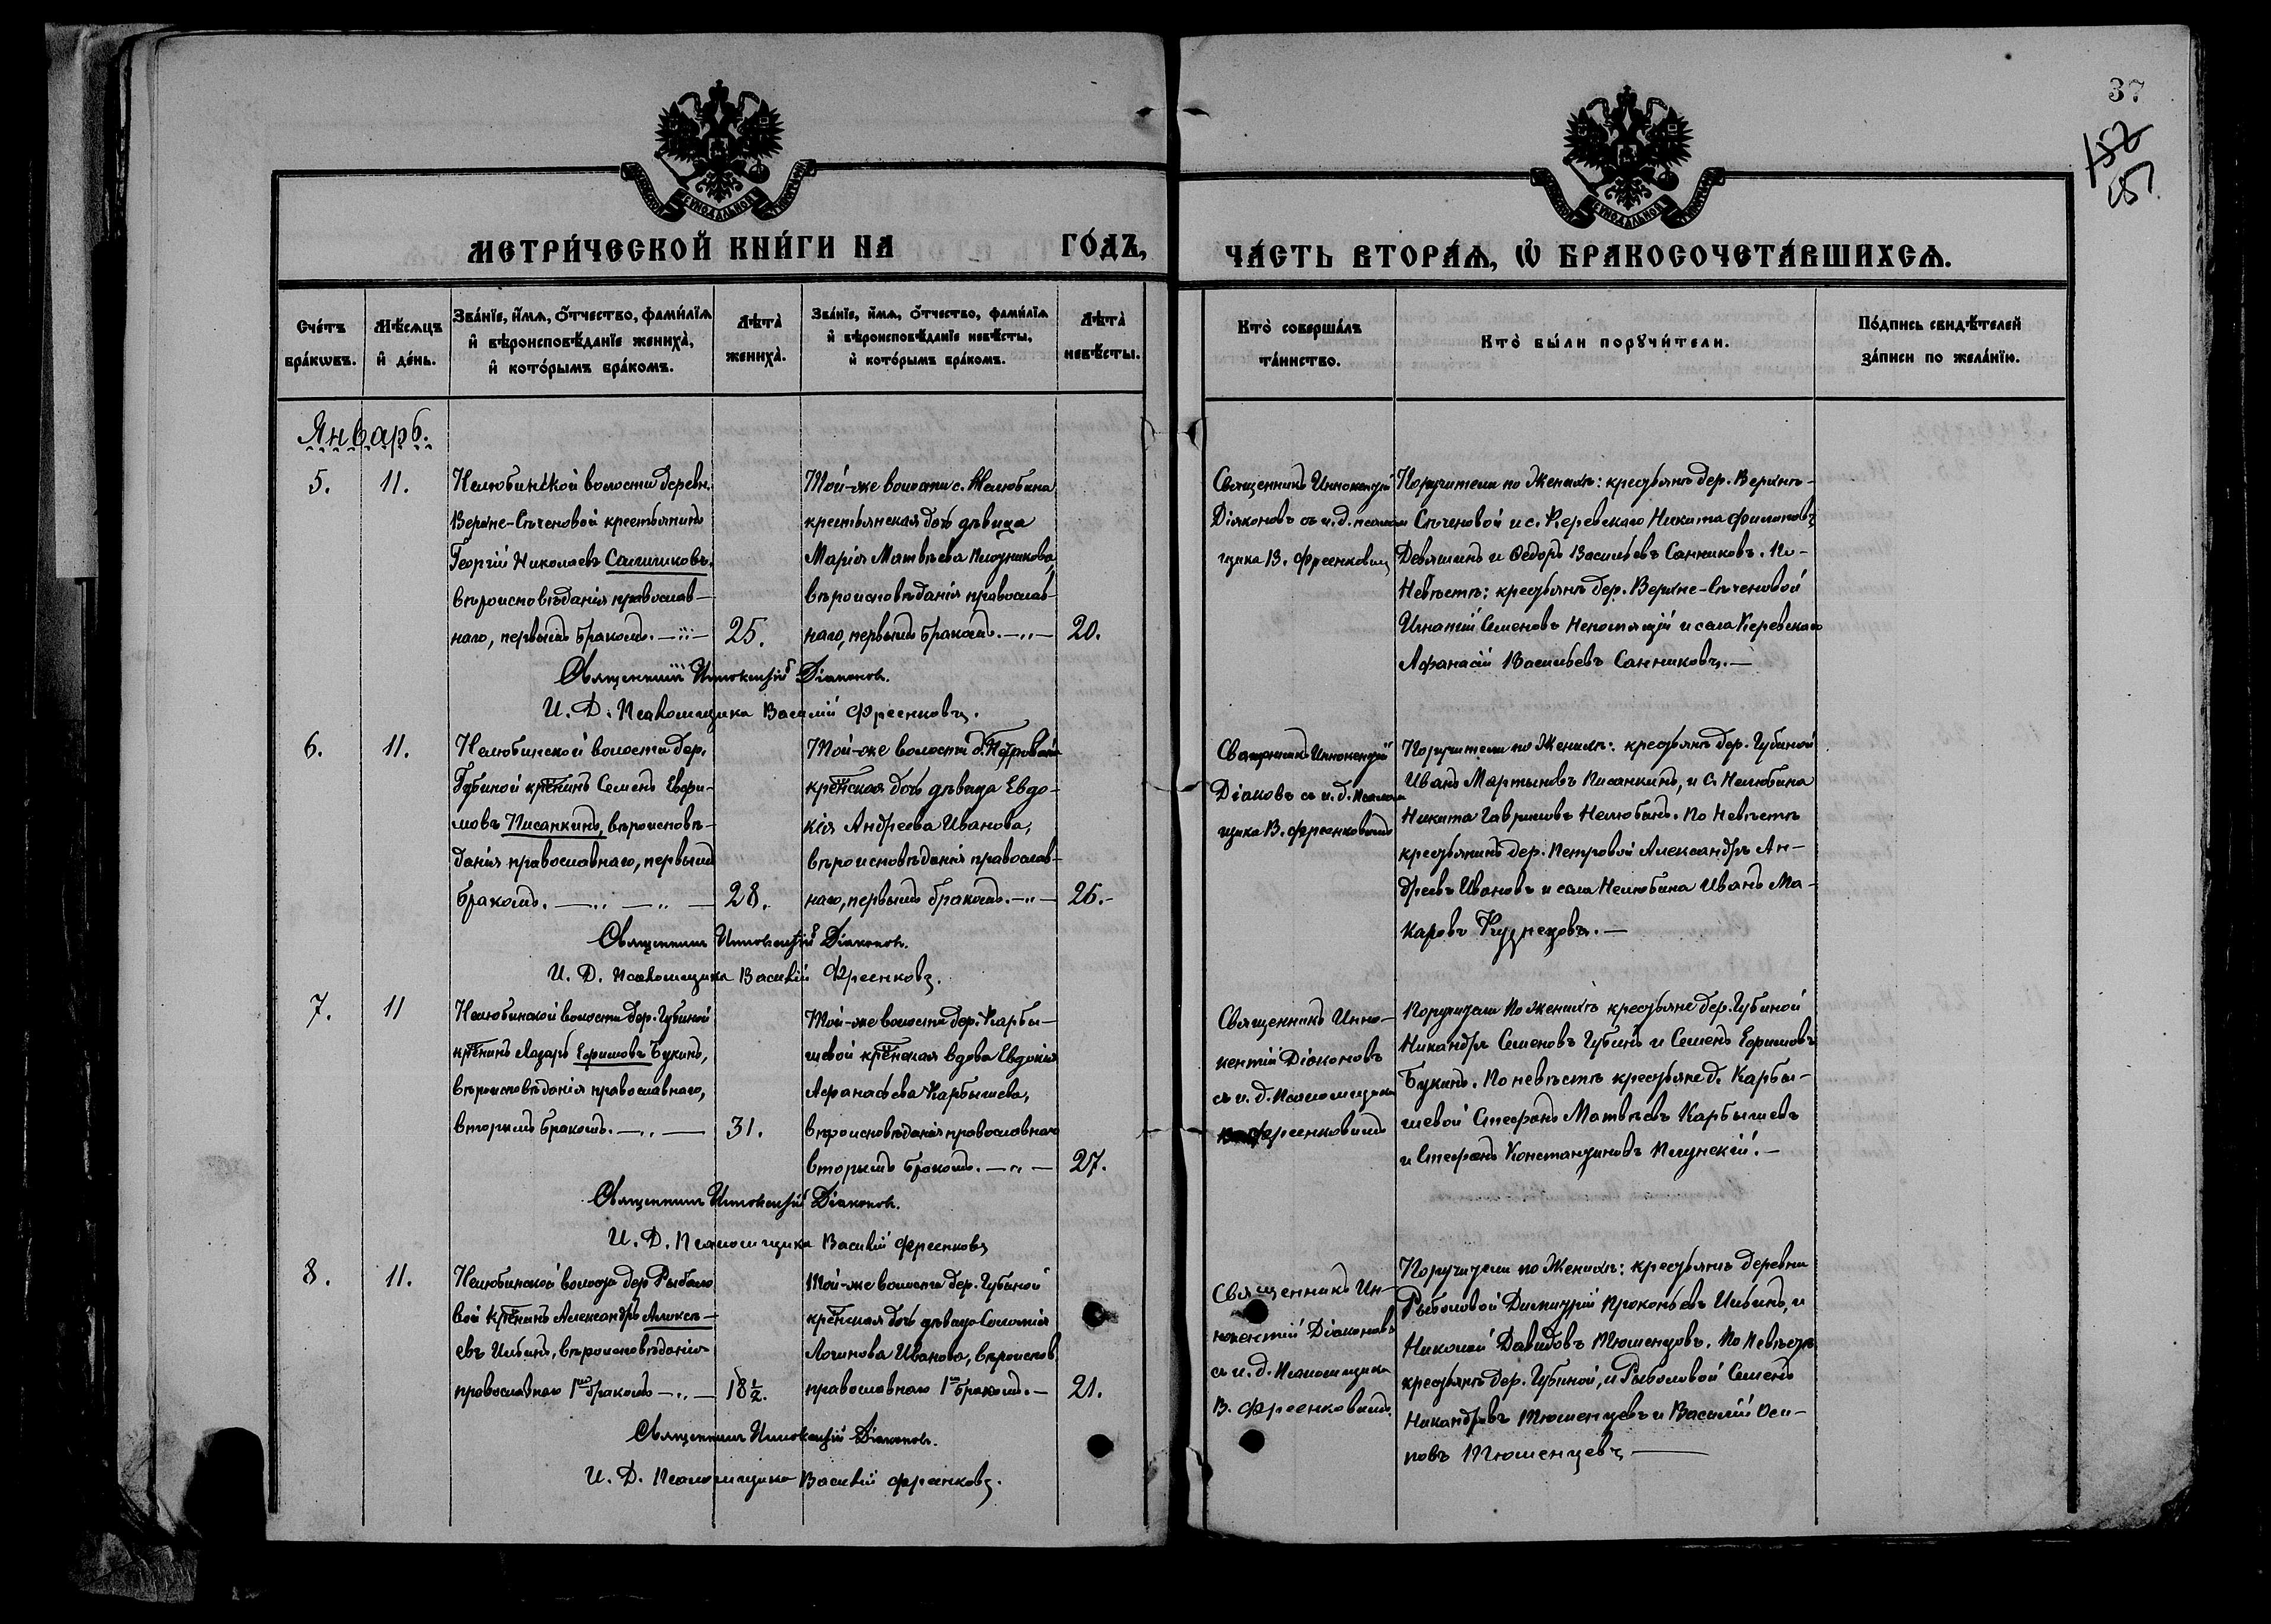 37
152
МЕТРИ́ЧЕСКОЙ КНИ́ГИ НА ГО́ДЪ,
ЧА́СТЬ ВТОРА́Ѧ, Ѽ БРАКОСОЧЕТА́ВШИХСѦ.
Сче́тъ бра́кѡвъ.
Мѣ́сѧцъ и҆ де́нь.
Зва́нїе, и҆́мѧ, ѻ҆́тчество, фами́лїѧ
и҆ вѣроисповѣ́данїе женихà,
и҆ кото́рымъ бра́комъ.
Лѣтà женихà.
Зва́нїе, и҆́мѧ, ѻ҆́тчество, фами́лїѧ
и҆ вѣроисповѣ́данїе невѣ́сты,
и҆ кото́рымъ бра́комъ.
Лѣтà невѣ́сты.
Кто̀ соверша́лъ
та́инство.
Кто̀ бы́ли порꙋчи́тели.
По́дпись свидѣ́телей
за́писи по жела́нїю.
Январь.
5.
11.
Нелюбинской волости дерев.
Верхне-Сѣченовой крестьянинъ
Георгій Николаевъ
вѣроисповѣданія православ-
наго, первымъ бракомъ.
25.
Той-же волости с. Нелюбина
крестьянская дочь дѣвица
Марія Матвѣева Плотникова,
вѣроисповѣданія православ-
наго, первымъ бракомъ.
20.
Священникъ Иннокентій
Діаконовъ съ и. д. псалом-
щика В. Фреенковым
Поручители по женихѣ: крестьянѣ дер. Верхнѣ-
Сѣченовой и с. Керевскаго Никита Филиповъ
Девяшинъ и Ѳедоръ Васильевъ Санниковъ. По-
Невѣстѣ: крестьянѣ дер. Верхне-Сѣченовой
Игнатій Семеновъ и села Керевскаго
Афанасій Васильевъ Санниковъ.
Священникъ Иннокентій Діаконов.
И. Д. Псаломщика Василій Фреенковъ.
6.
11.
Нелюбинской волости дер.
Губиной кр-нинъ Семенъ Ефи-
мовъ Писанкинъ, вѣроисповѣ-
данія православнаго, первымъ
бракомъ.
28.
Той-же волости д. Петровой
кр-нская дочь дѣвица Евдо-
кія Андреева Иванова,
вѣроисповѣданія православ-
наго, первымъ бракомъ.
26.
Священникъ Иннокентій
Діаковъ съ и. д. Псалом-
щика В. Фреенковымъ
Поручители по Женихѣ: крестьянѣ дер. Губиной
Иванъ Мартыновъ Писанкинъ, и С. Нелюбина
Никита Гавриловъ Нелюбинъ. По Невѣстѣ
крестьянинъ дер. Петровой Александръ Ан-
дреевъ Ивановъ и села Нелюбина Иванъ Ма-
каровъ Кузнецовъ.
Священникъ Иннокентій Діаконов.
И. Д. Псаломщика Василій Фреенковъ.
7.
11
Нелюбинской волости дер. Губиной
кр-нинъ Лазарь Ефимовъ Букинъ,
вѣроисповѣданія православнаго,
вторымъ бракомъ.
31.
Той-же волости дер. Карбы-
шевой кр-нская вдова Евдокія
Афанасьева Карбышева,
вѣроисповѣданія православнаго
вторымъ бракомъ.
27.
Священникъ Инно-
кентій Діаконовъ
съ и. д. Псаломщика
Фреенковымъ
Поручители по женихѣ крестьяне дер. Губиной
Никандръ Семеновъ Губинъ и Семенъ Ефимовъ
Букинъ. По невѣстѣ крестьяне д. Карбы-
шевой Стефанъ Матвѣевъ Карбышевъ
и Стефанъ Константиновъ
Священникъ Иннокентій Діаконов.
И. Д. Псаломщика Василій Фреенковъ
8.
11.
Нелюбинской волости дер Рыбало
вой кр-нинъ Александръ Алексѣ-
евъ Ильинъ, вѣроисповѣданія
православнаго 1мъ бракомъ
18½.
Той-же волости дер. Губиной
кр-нская дочь дѣвица Соломія
Логинова Иванова, вѣроисповѣ
православнаго 1мъ бракомъ.
21.
Священникъ Ин-
нокентій Діаконовъ
съ и. д. Псаломщика
В. Фреенковымъ.
Поручители по Женихѣ: крестьянѣ деревни
Рыболовой Димитрій Прокопьевъ Ильинъ, и
Николай Давидовъ Тюменцовъ. По Невѣстѣ
крестьянѣ дер. Губиной, и Рыболовой Семенъ
Никандровъ Тюменцевъ и Василій Оси-
повъ Тюменцевъ
Священникъ Иннокентій Діаконов.
И. Д. Псаломщика Василій Фреенковъ.